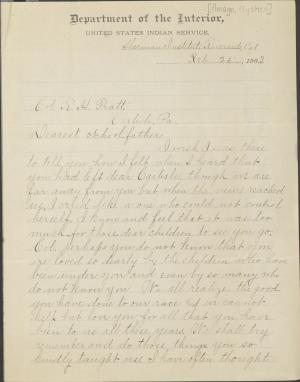 [Amago, Ryshen]
Department of the Interior,
UNITED STATES INDIAN SERVICE,
Sherman Institute Riverside, Cal
Feb. 190
Col. R. H. Pratt,
Carlisle, Pa.
Dearest schoolfather
I wish I was there
to tell you how I felt when I heard that
you had left dear Carlisle, though we are
far away from you but when the news reached
me, I cried like a one who could not control
herself. I know and feel that it was too
much for those dear children to see you go.
Col. perhaps you do not know that you
are loved so dearly by the children who have
been under you and even by so many who
do not know you. We all realize the good
you have done to our race and we cannot
help but love you for all that you have
been to us all these years. We shall try
remember and do those things you so
kindly taught us. I have often thought